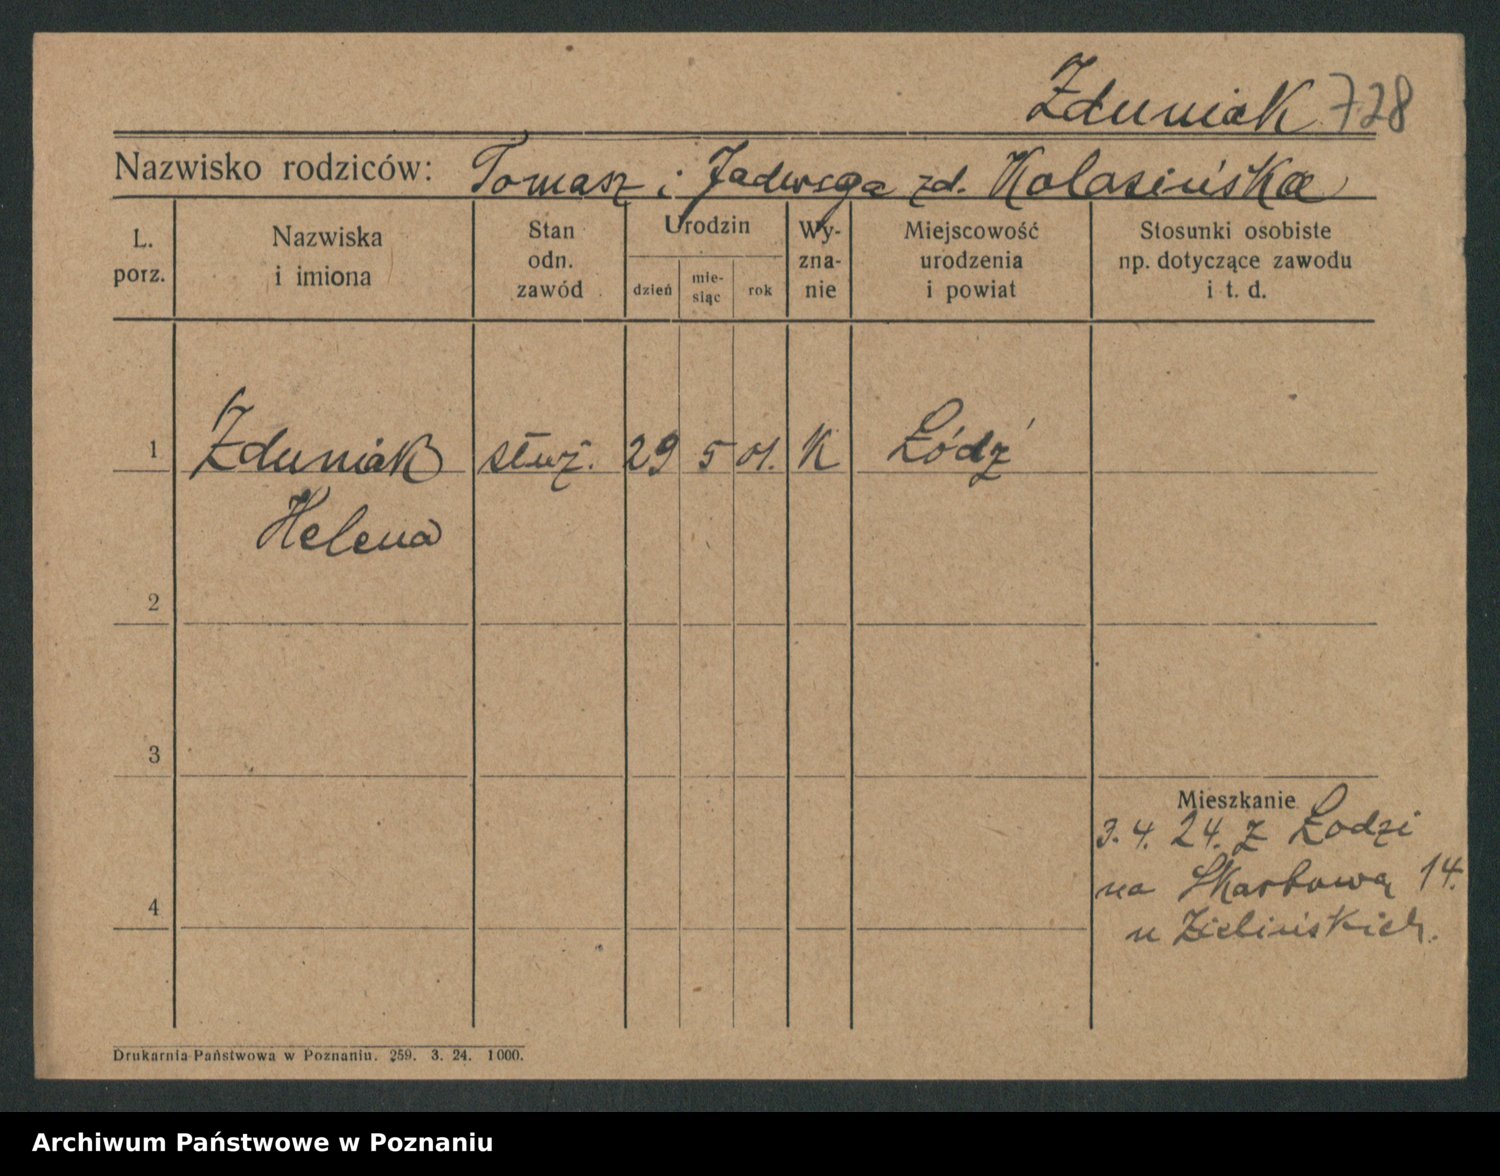 Zduniak 728
Nazwisko rodziców: Tomasz i Jadwiga zd. Kolasińska
L. porz.
Nazwiska i imiona
Stan odn. zawód
Urodzin
dzień
mie-siąc
rok
Wy-zna-nie
Miejscowość urodzenia i powiat
Stosunki osobiste np. dotyczące zawodu i t. d.
1 Zduniak służ. 29 5 01. K Łódź
Helena
2
3
Mieszkanie
3. 4. 24. z Łodzi
na Skarbową 14.
4
u Zielińskich.
Drukarnia Państwowa w Poznaniu. 259. 3. 24. 1000.
Archiwum Państwowe w Poznaniu